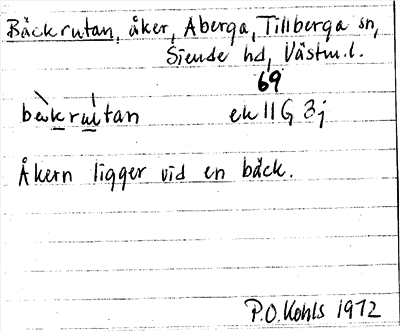 Bäckrutan, åker, Åberga, Tillberga sn,
Siende hd, Västm.l.
69
ek 11G 3j
Åkern ligger vid en bäck.
P.O. Kohls 1972